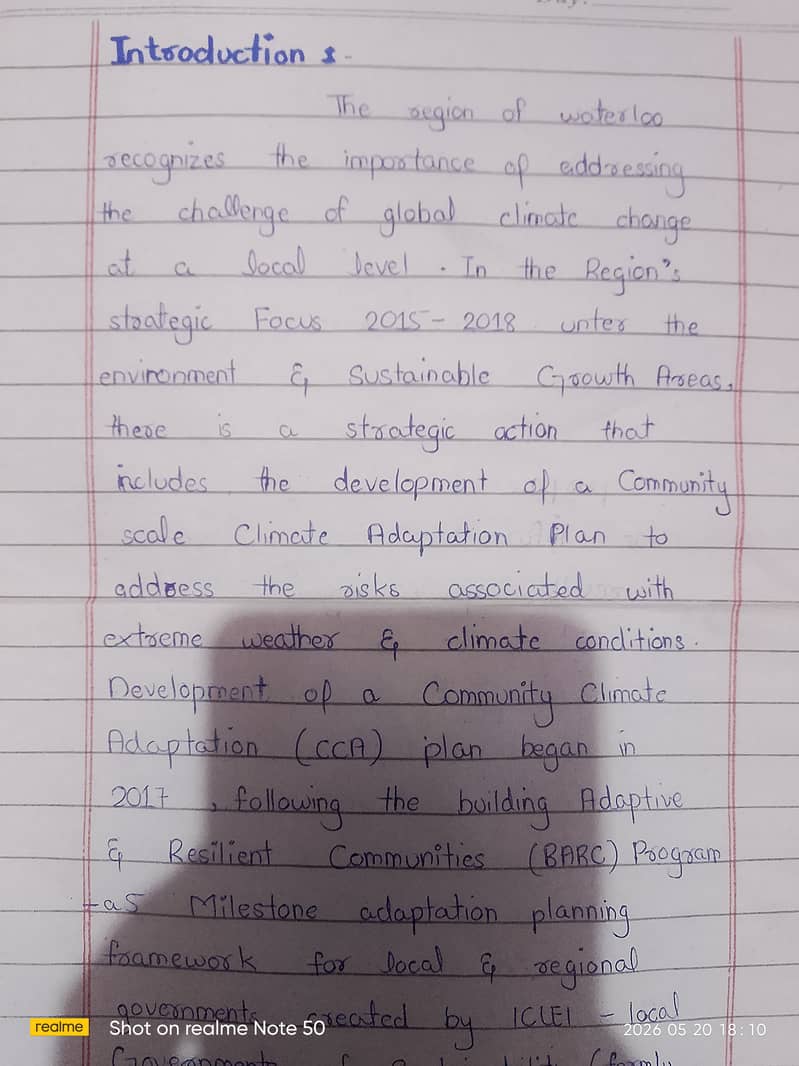 Introduction :-
The region of waterloo
recognizes the importance of addressing
the challenge of global climate change
at a local level. In the Region's
strategic Focus 2015 - 2018 unter the
environment & Sustainable Growth Areas,
there is a strategic action that
includes the development of a Community
scale Climate Adaptation Plan to
address the risks associated with
extreme weather & climate conditions.
Development of a Community Climate
Adaptation (CCA) plan began in
2017, following the building Adaptive
& Resilient Communities (BARC) Program
-a 5 Milestone adaptation planning
framework for local & regional
governments created by ICLEI - local
Governments (formly
realme Shot on realme Note 50
2026 05 20 18:10